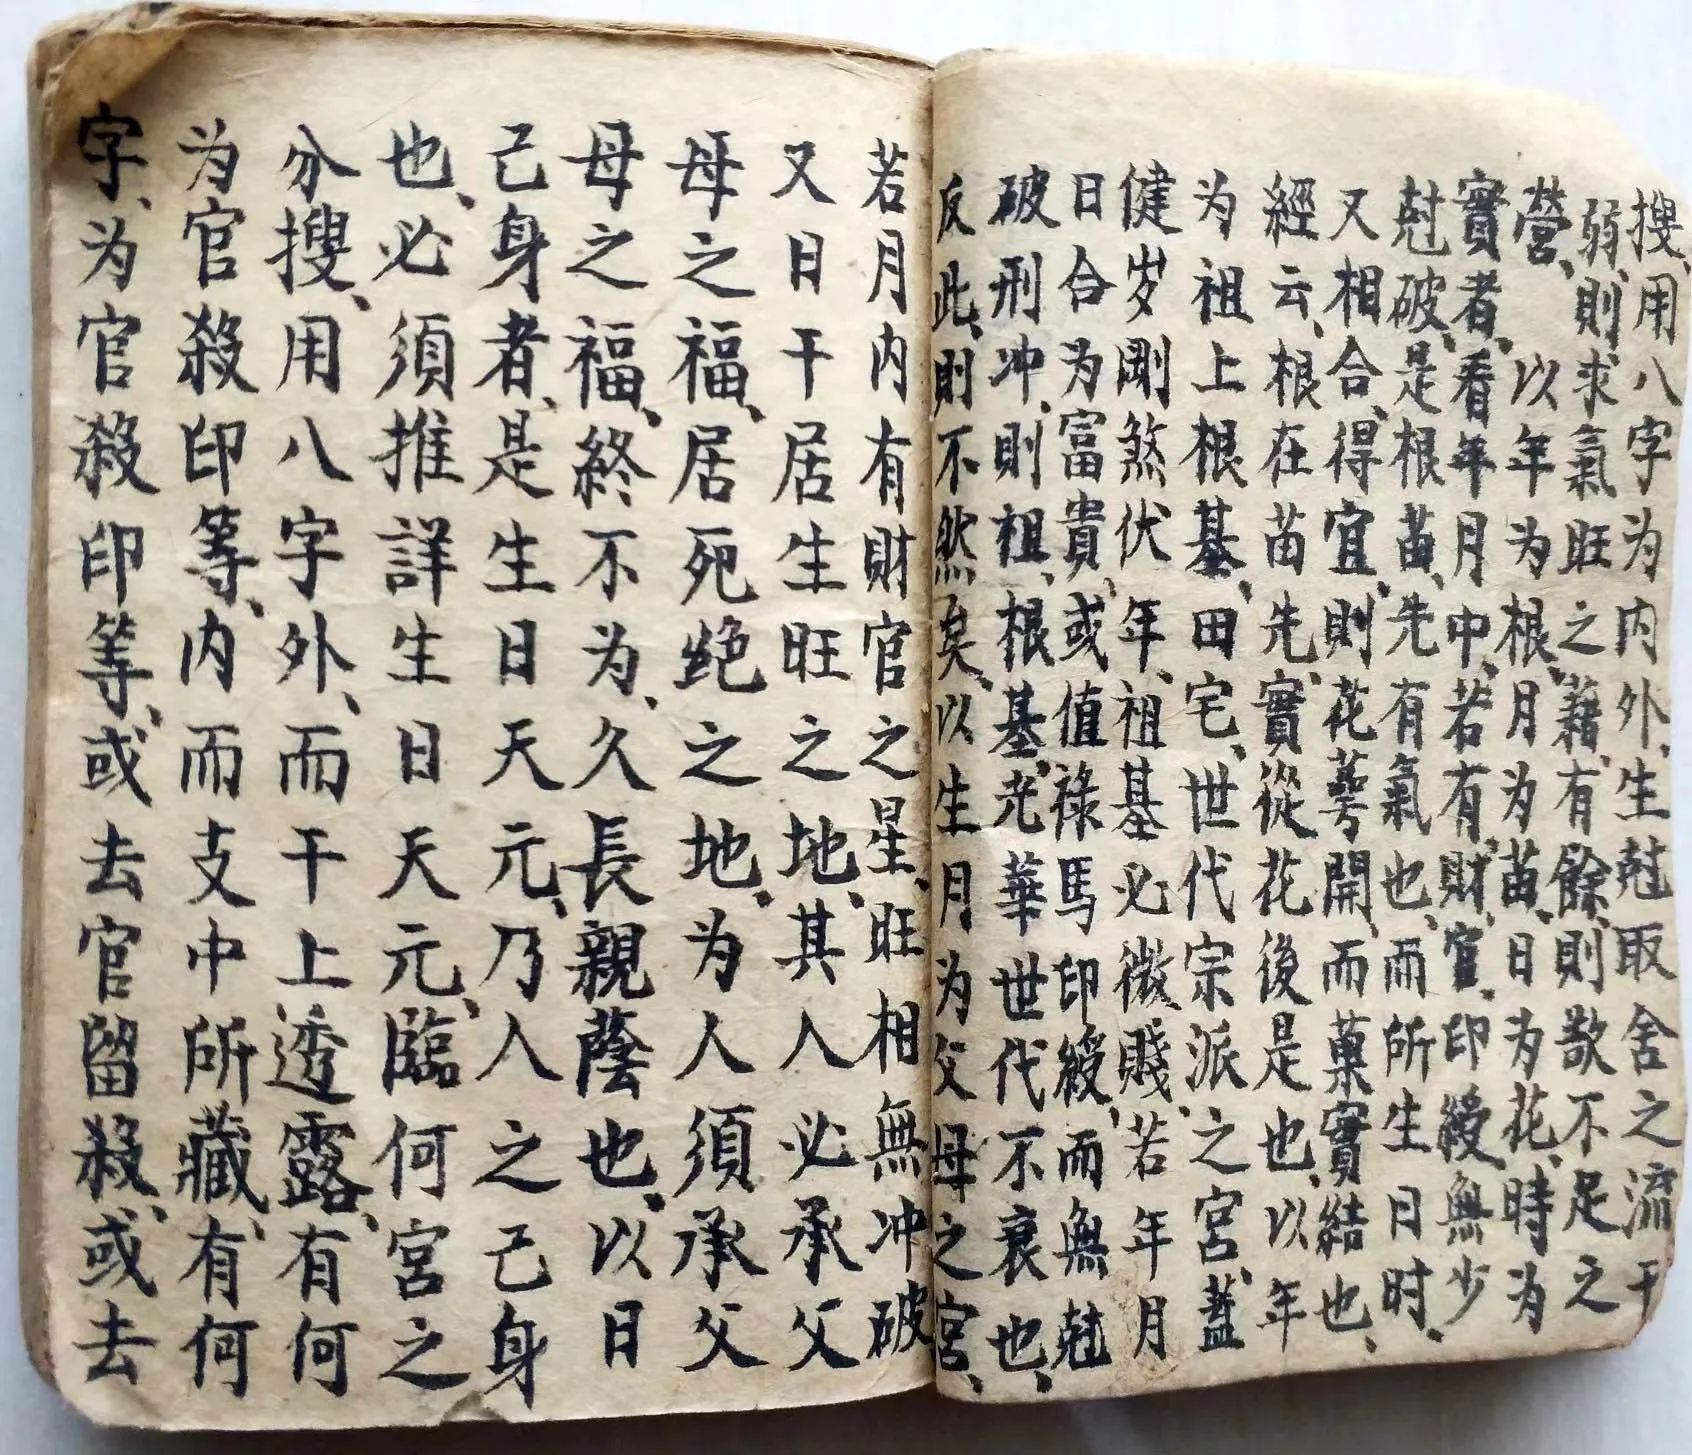 搜、用八字为内外、生尅取舍之流干
弱、則求氣旺之藉、有餘、則欷不足之
營、以年为根、月为苗、日为花、時为
實者、看年月中、若有財、官、印綬、無少
尅破、是根苗、先有氣也、而所生日时、
又相合、得宜、則花萼開、而菓實結也、
經云、根在苗先、實從花後是也、以年
为祖上根基、田宅、世代宗派之宮、蓋
健岁剛煞伏年、祖基必微賤、若年月
日合为富貴、或值祿馬印綬、而無尅
破刑冲、則祖、根基、光華世代不衰也、
反此、則不然矣、以生月为父母之宮、
若月内有財官之星、旺相無冲破
又日干居生旺之地、其人必承父
母之福、居死絶之地、为人須承父
母之福、終不为、久長親蔭也、以日
己身者、是生日天元、乃人之己身
也、必須推詳生日天元、臨何宮之
分搜、用八字外、而干上透露、有何
为官殺印等、内而支中所藏、有何
字、为官殺印等、或去官留殺、或去